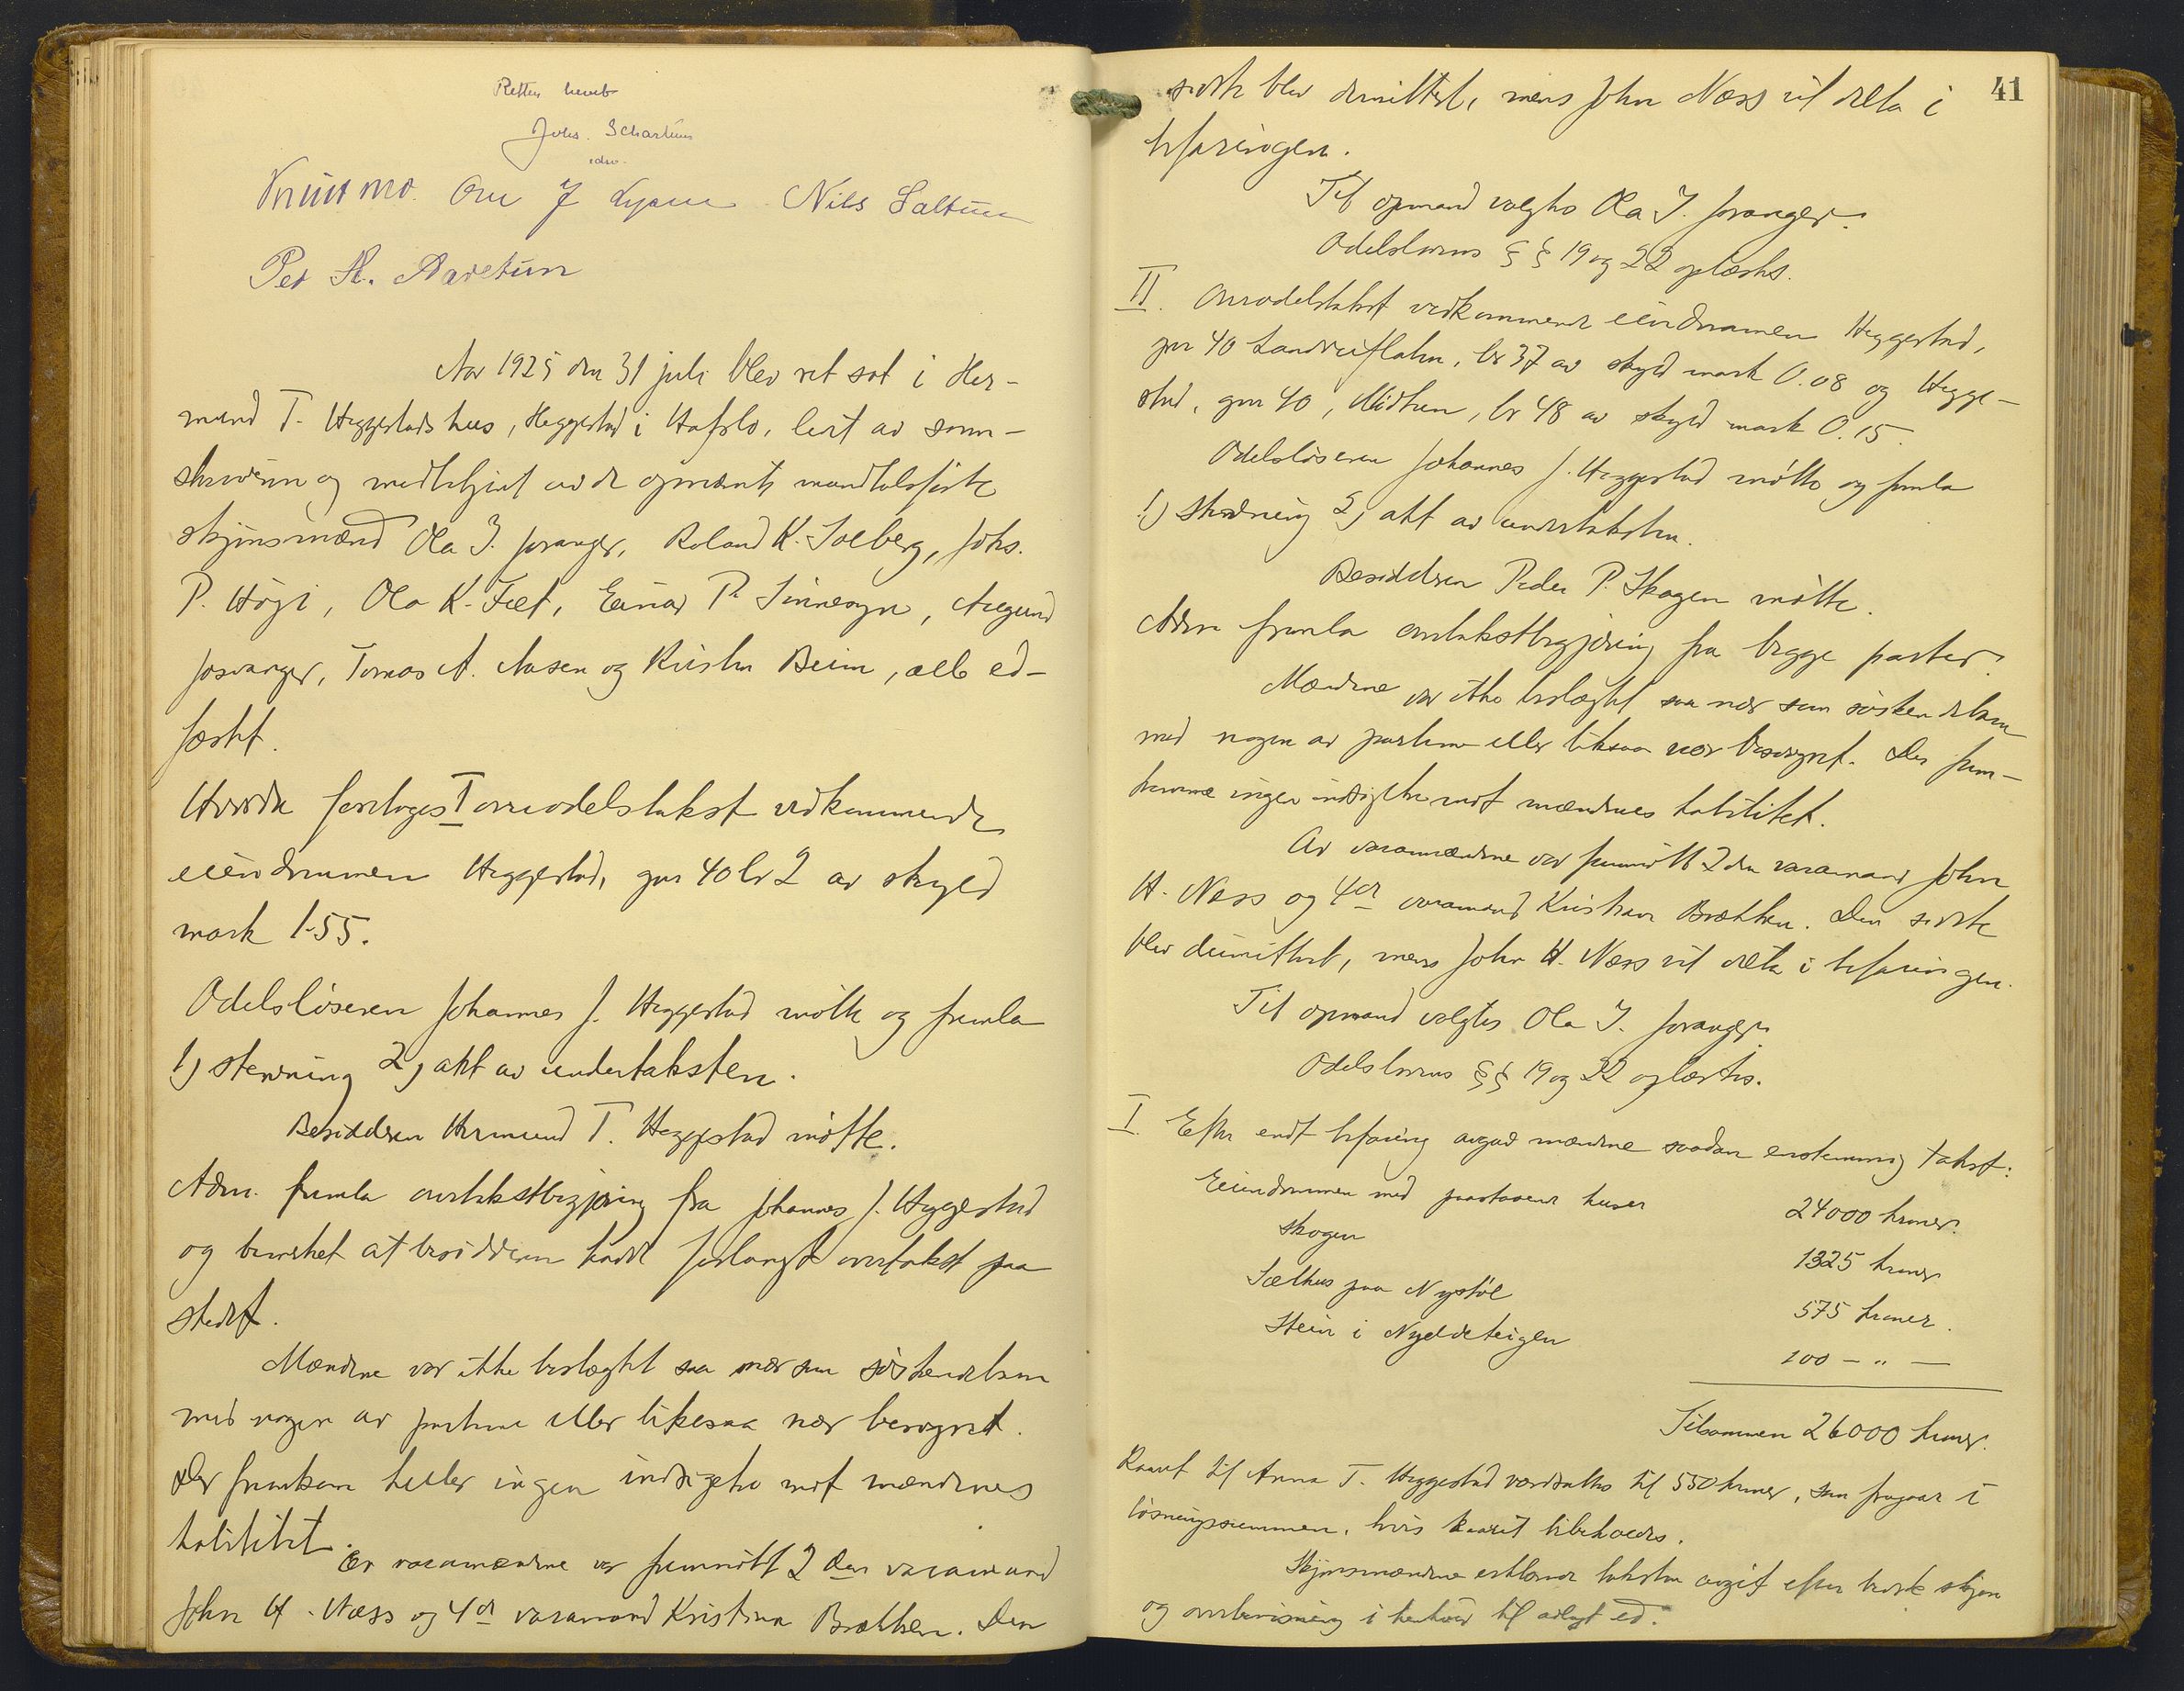 Retten hevet
Johs. Schartum
edsv.
Knut Mo. Ole J Lyæm Nils Saltun
Per H. Aaretun
Aar 1925 den 31 juli blev ret sat i Her-
mund T. Heggestads hus, Heggestad i Hafslo, leit av soren-
skriveren og medbetjent av de opnævnte mandtalsførte
skjønsmænd Ola J. Joranger, Roland K. Solberg, Johs.
P. Høgi, Ola K. Feet, Einar P. Sinnesyn, Augund
Joranger, Tomas A. Aasen og Kristen Beim, alle ed-
fæstet.
Hvorda foretoges I overodelstakst vedkommende
eiendommen Heggestad, gnr 40 br 2 av skyld
mark 1.55.
Odelsløseren Johannes J. Heggestad møtte og fremla
1) stevning 2) akt av undertaksten.
Besidderen Hermund T. Heggestad møtte.
Adm. fremla overtakstbegjæring fra Johannes J. Heggestad
og bemerket at besidderen hadde forlangt overtakst paa
stedet.
Mændene var ikke beslægtet saa nær som søskendebarn
med nogen av parterne eller likesaa nær besvogret.
Der fremkom heller ingen indsigelse mot mændenes
habilitet.
Av varamændene var fremmøtt 2den varamand
John H. Næss og 4de varamand Kristian Brækken. Den
sidste blev dimittert, mens John Næss vil delta i
befaringen.
Til opmand valgtes Ola J. Joranger.
Odelslovens §§ 19 og 22 oplæstes.
II. Overodelstakst vedkommende eiendommen Heggestad,
gnr 40 Sandvikflaten, br 37 av skyld mark 0.08 og Hegge-
stad, gnr 40, Midtun, br 48 av skyld mark 0.15.
Odelsløseren Johannes J. Heggestad møtte og fremla
1) Stevning 2) akt av undertaksten.
Besidderen Peder P. Skogen møtte.
Adm fremla overtakstbegjæring fra begge parter.
Mændene var ikke beslægtet saa nær som søskendebarn
med nogen av parterne eller likesaa nær besvogret. Der frem-
kom ingen indsigelse mot mændenes habilitet.
Av varamændene var fremmøtt 2den varamand John
H. Næss og 4de varamand Kristian Brækken. Den sidste
blev dimittert, mens John H. Næss vil delta i befaringen.
Til opmand valgtes Ola J. Joranger.
Odelslovens §§ 19 og 22 oplæstes.
I. Efter endt befaring avgav mændene saadan enstemmig takst:
Eiendommen med paastaaende huser 24000 kroner.
Skogen 1325 kroner
Sælhus paa Nystøl 575 kroner.
Stein i Nyeldeteigen 100 - " -
Tilsammen 26000 kroner.
Kaaret til Anna T. Heggestad værdsættes til 550 kroner, som fragaar i
løsningssummen, hvis kaaret bibeholdes.
Skjønsmændene erklærede taksten avgit efter bedste skjøn
og overbevisning i henhold til avlagt ed.
41